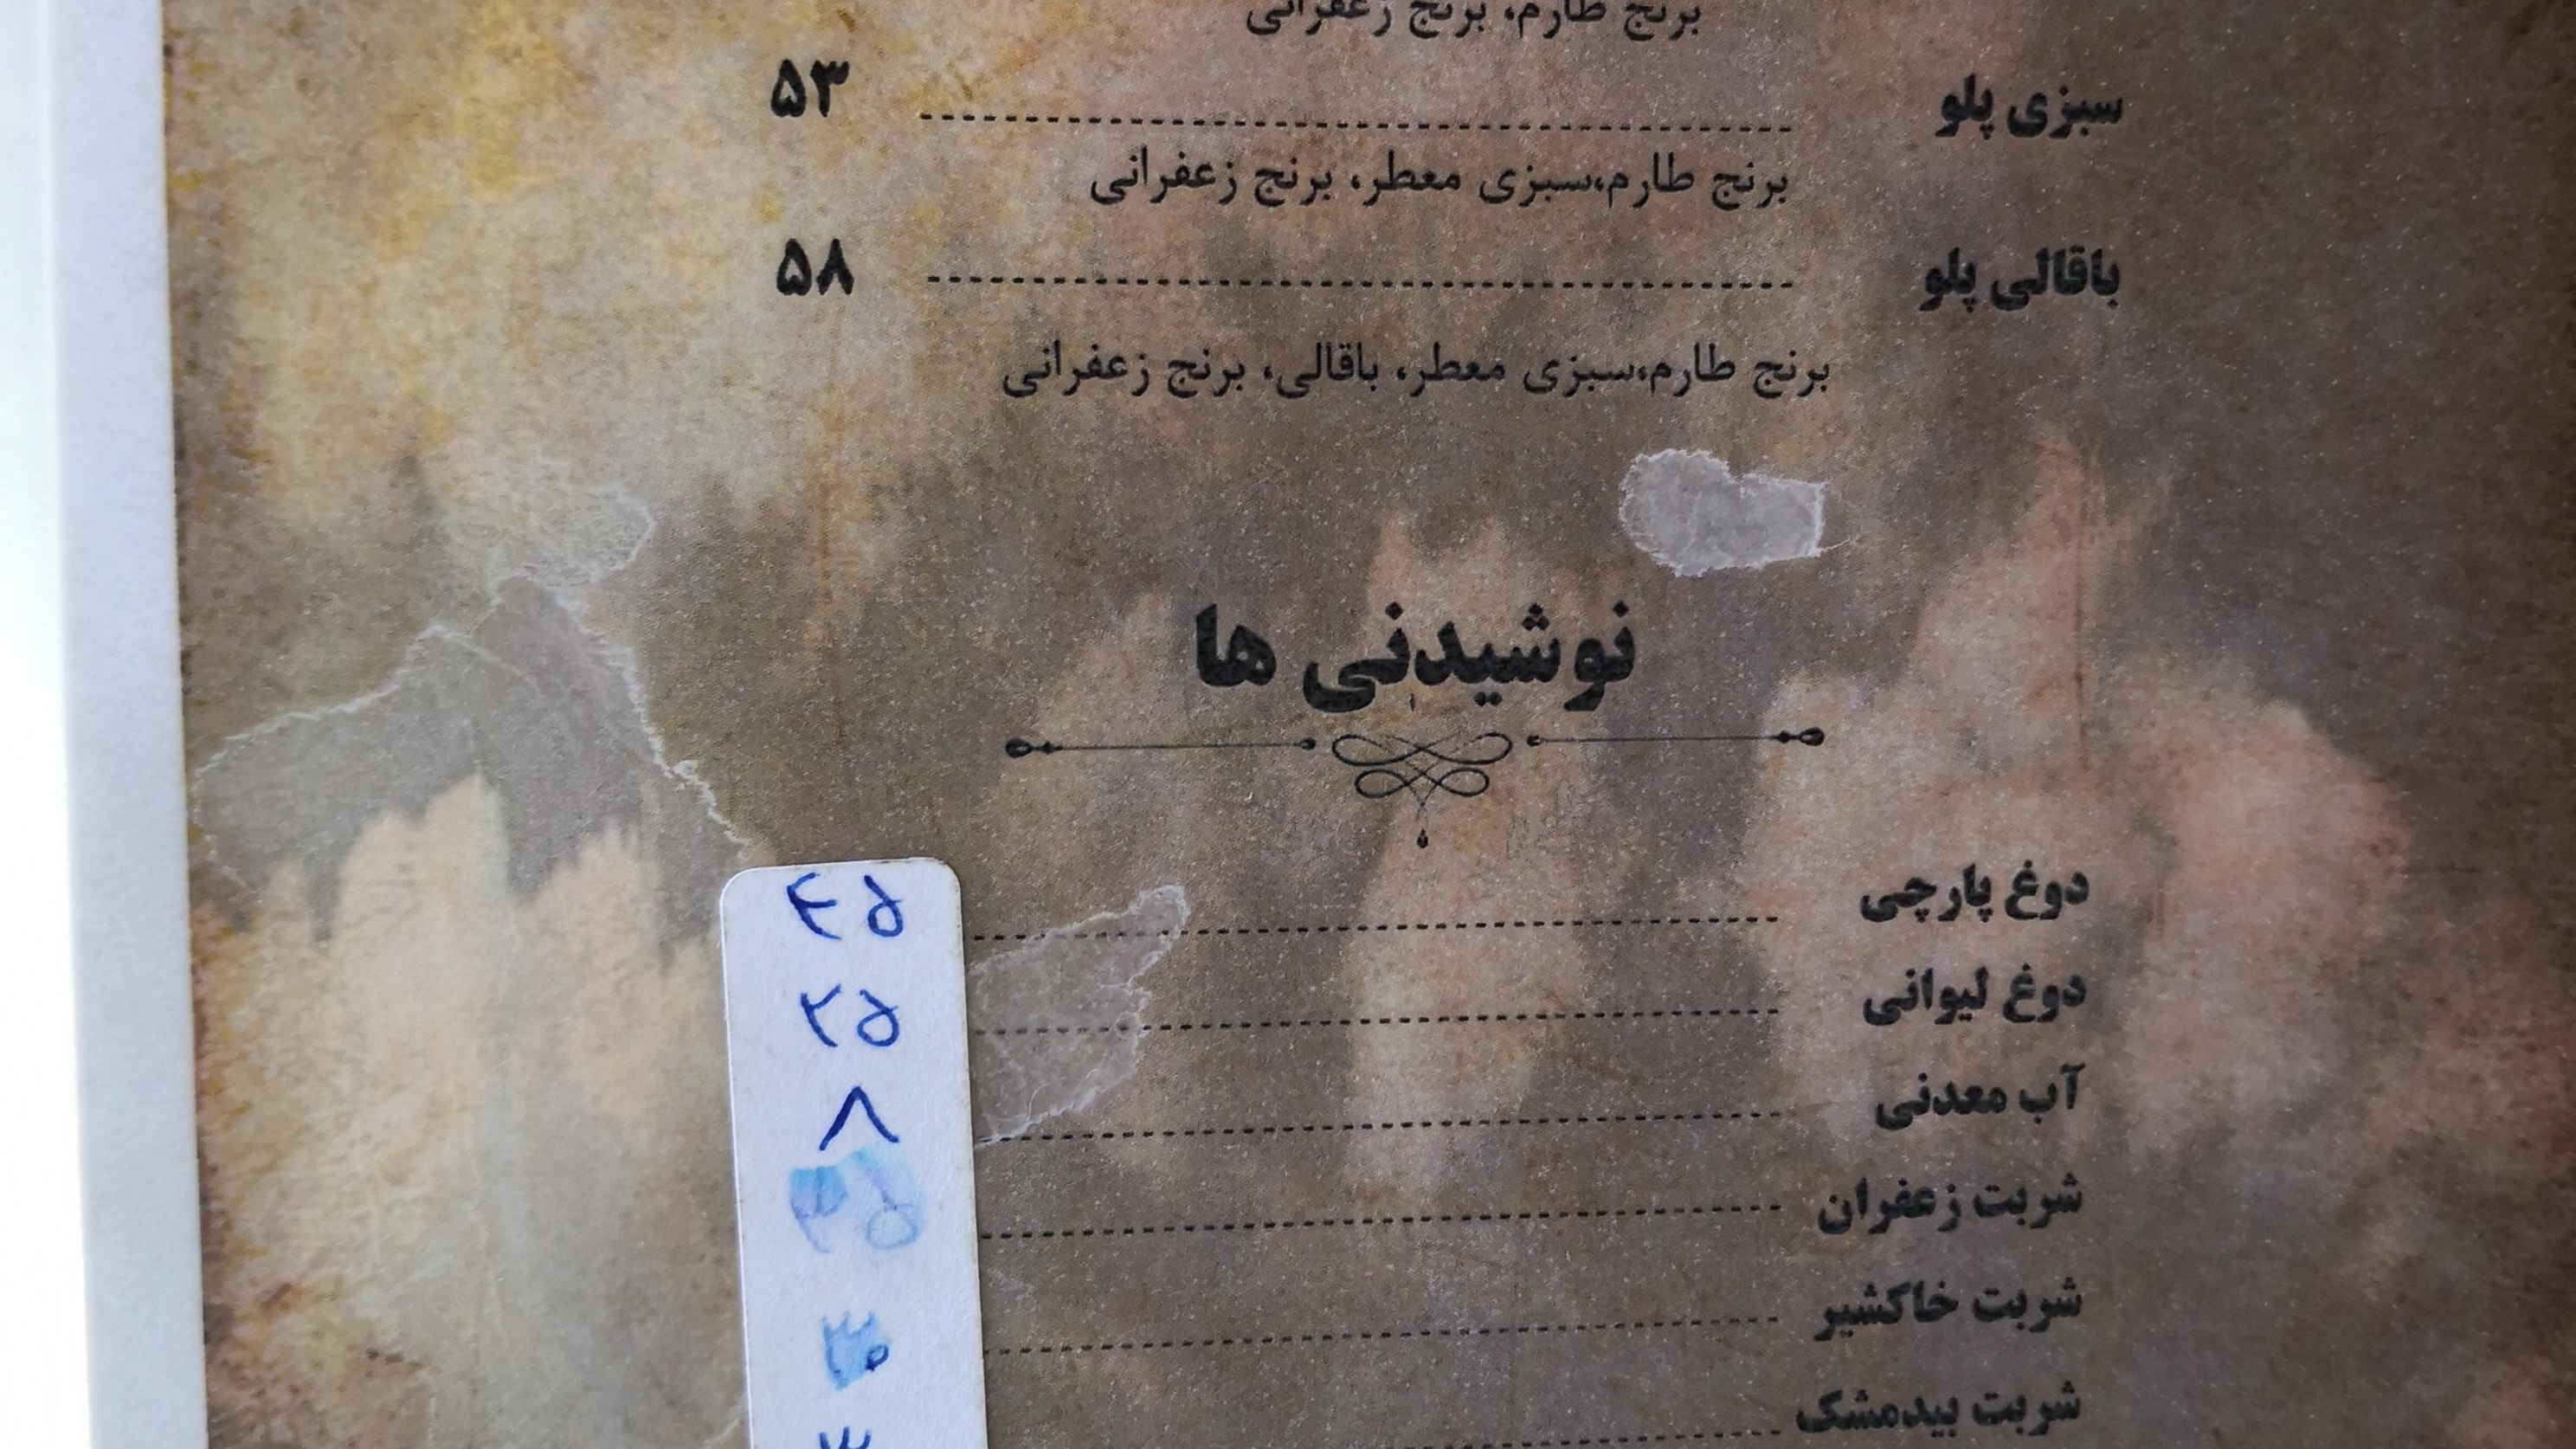 برنج طارم، برنج زعفرانی
سبزی پلو ۵۳
برنج طارم،سبزی معطر، برنج زعفرانی
باقالی پلو ۵۸
برنج طارم،سبزی معطر، باقالی، برنج زعفرانی
نوشیدنی ها
دوغ پارچی ۴۵
دوغ لیوانی ۲۵
آب معدنی ۸
شربت زعفران ۳۵
شربت خاکشیر ۳۰
شربت بیدمشک